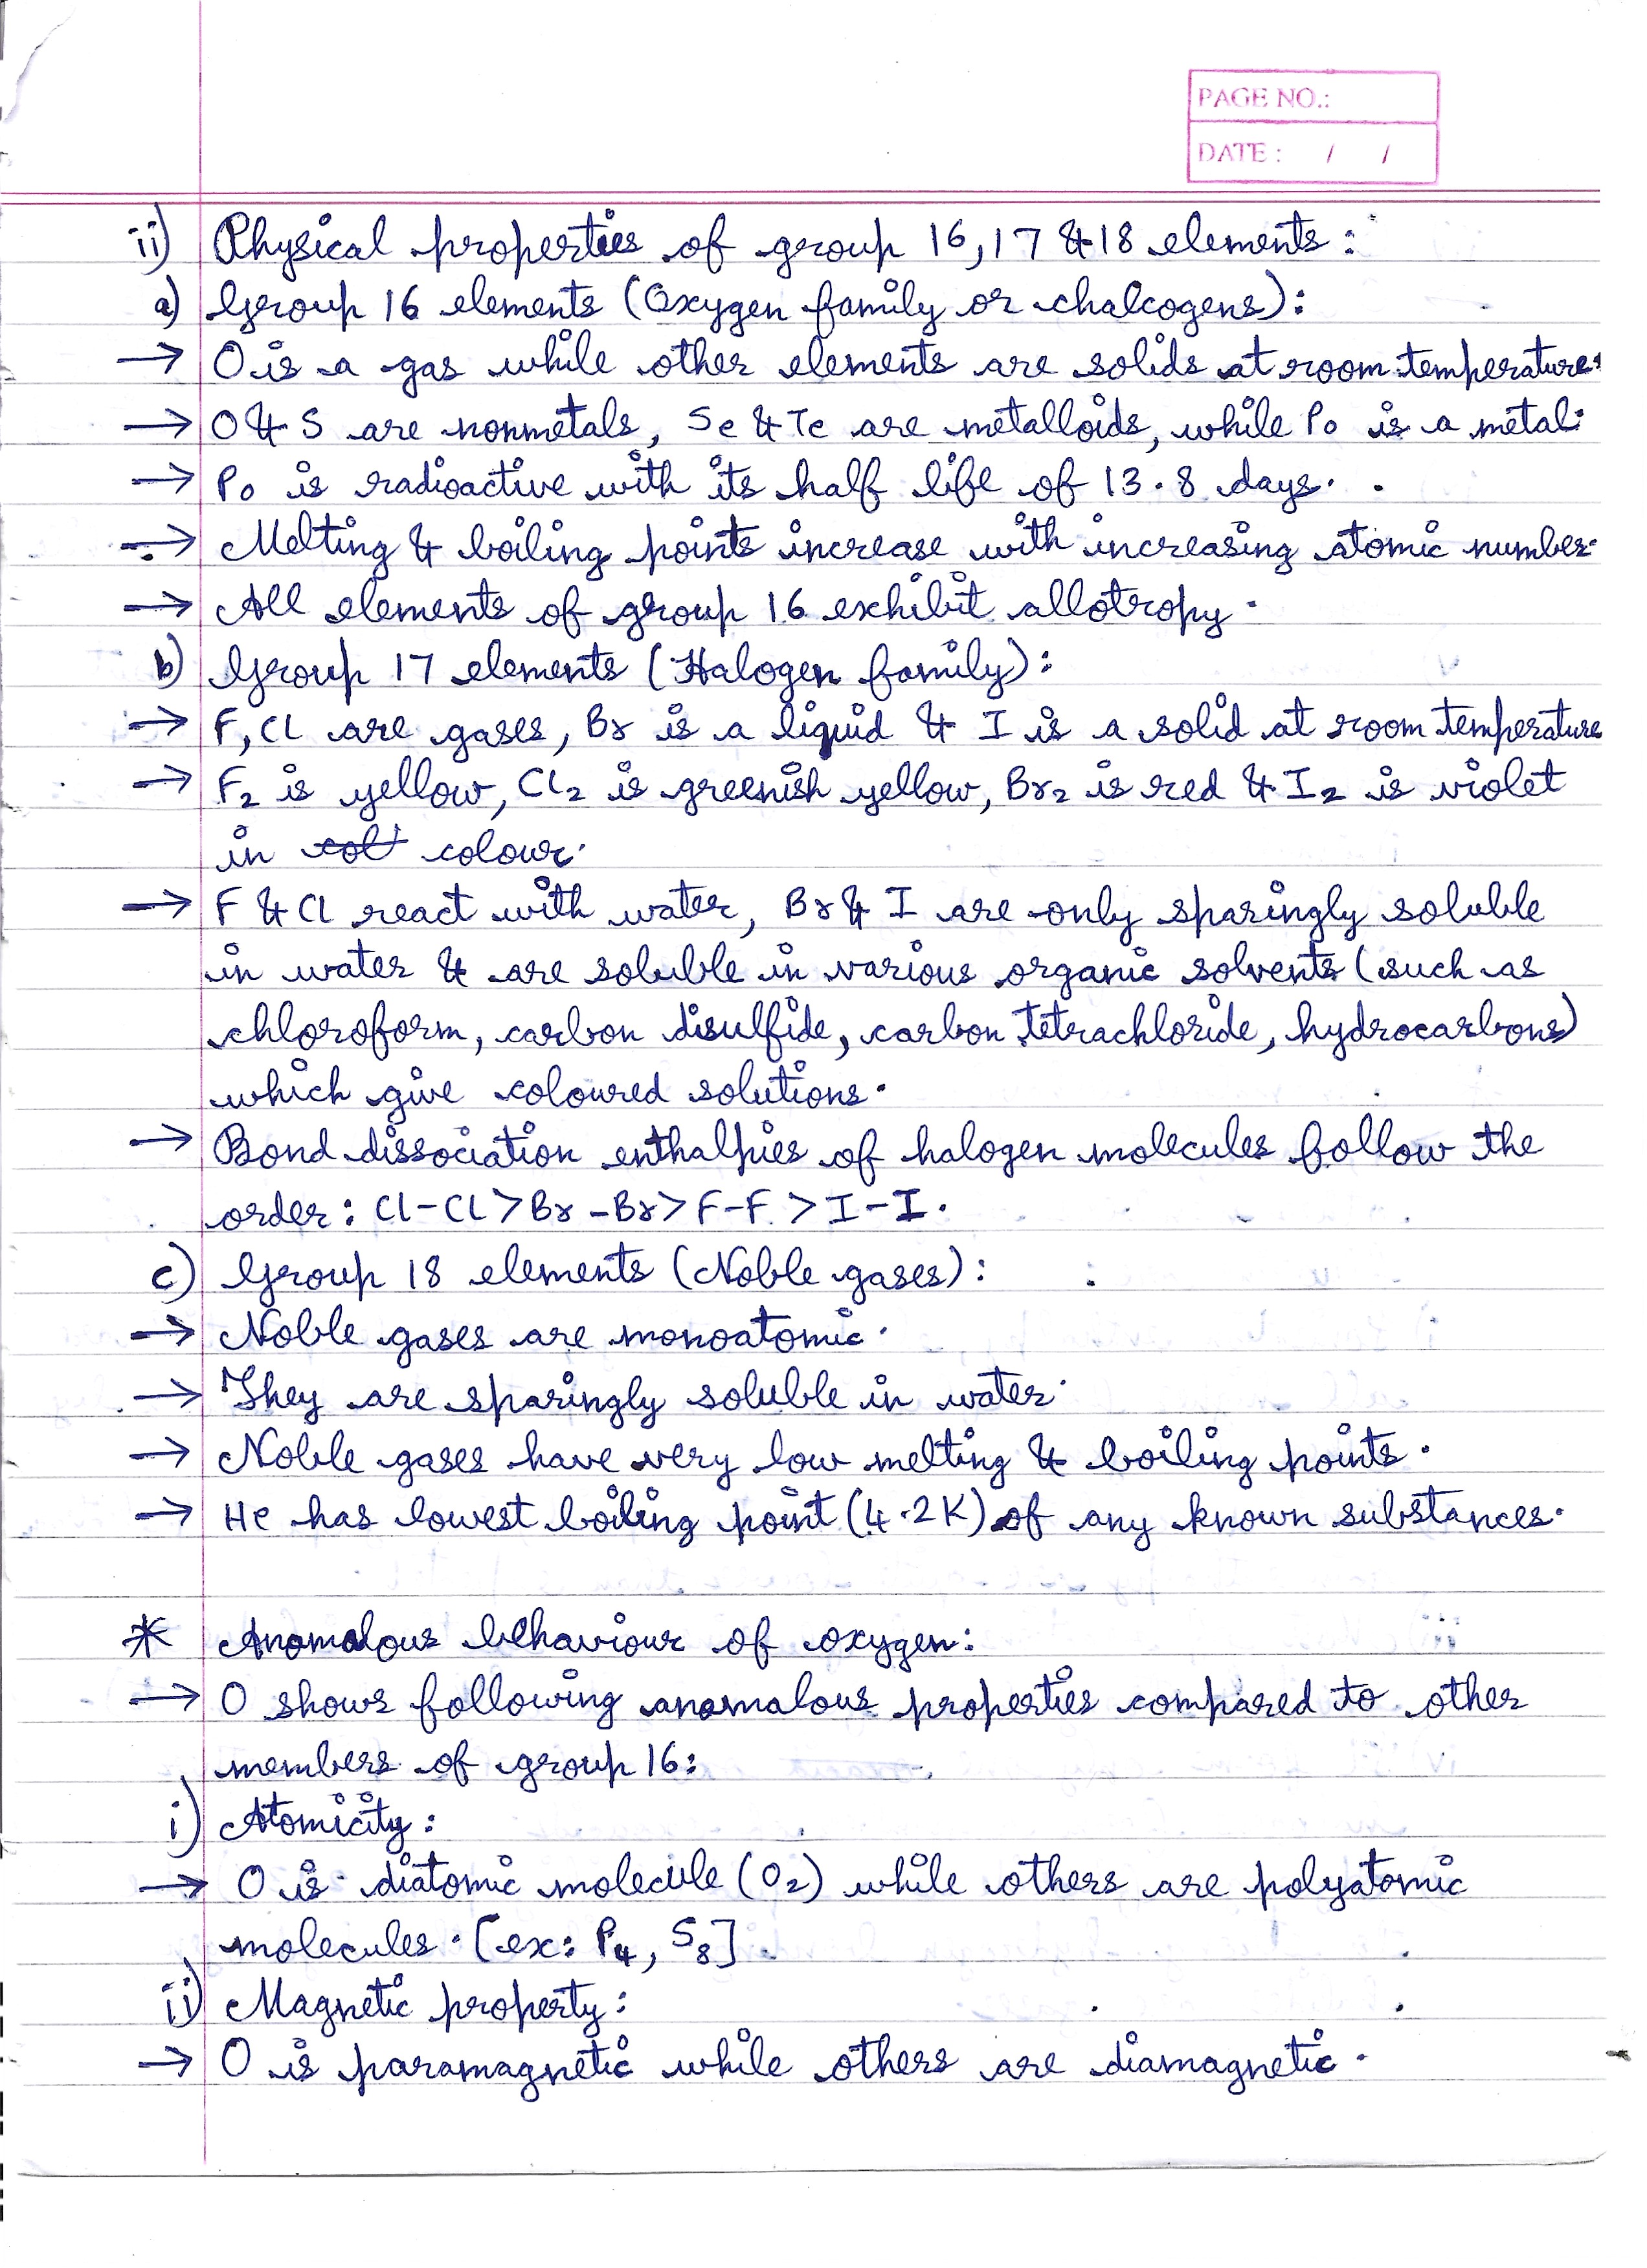 PAGE NO.:
DATE : / /
ii) Physical properties of group 16, 17 & 18 elements :
a) Group 16 elements (Oxygen family or chalcogens) :
→ O is a gas while other elements are solids at room temperature.
→ O & S are nonmetals, Se & Te are metalloids, while Po is a metal.
→ Po is radioactive with its half life of 13.8 days.
→ Melting & boiling points increase with increasing atomic number.
→ All elements of group 16 exhibit allotropy.
b) Group 17 elements (Halogen family) :
→ F, Cl are gases, Br is a liquid & I is a solid at room temperature
→ F₂ is yellow, Cl₂ is greenish yellow, Br₂ is red & I₂ is violet
in colour.
→ F & Cl react with water, Br & I are only sparingly soluble
in water & are soluble in various organic solvents (such as
chloroform, carbon disulfide, carbon tetrachloride, hydrocarbons)
which give coloured solutions.
→ Bond dissociation enthalpies of halogen molecules follow the
order : Cl-Cl > Br-Br > F-F > I-I.
c) Group 18 elements (Noble gases) :
→ Noble gases are monoatomic.
→ They are sparingly soluble in water.
→ Noble gases have very low melting & boiling points.
→ He has lowest boiling point (4.2K) of any known substances.
* Anomalous behaviour of oxygen :
→ O shows following anomalous properties compared to other
members of group 16 :
i) Atomicity :
→ O is diatomic molecule (O₂) while others are polyatomic
molecules. [ex: P₄, S₈]
ii) Magnetic property :
→ O is paramagnetic while others are diamagnetic.